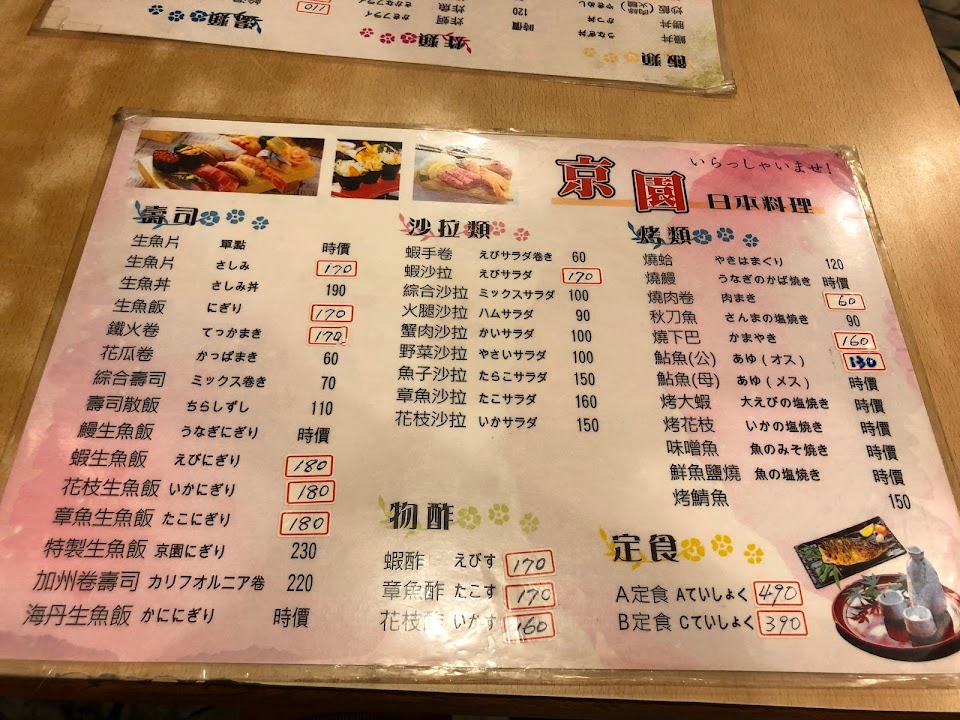 湯類
110
炸類
さかなフライ 炸魚
かきフライ 炸蚵
時價
120
飯類
うなぎ丼 鰻丼
かつ丼
いらっしゃいませ!
京園 日本料理
壽司
生魚片 單點 時價
生魚片 さしみ 170
生魚丼 さしみ丼 190
生魚飯 にぎり 170
鐵火卷 てっかまき 170
花瓜卷 かっぱまき 60
綜合壽司 ミックス巻き 70
壽司散飯 ちらしずし 110
鰻生魚飯 うなぎにぎり 時價
蝦生魚飯 えびにぎり 180
花枝生魚飯 いかにぎり 180
章魚生魚飯 たこにぎり 180
特製生魚飯 京園にぎり 230
加州卷壽司 カリフオルニア卷 220
海丹生魚飯 かににぎり 時價
沙拉類
蝦手卷 えびサラダ巻き 60
蝦沙拉 えびサラダ 170
綜合沙拉 ミックスサラダ 100
火腿沙拉 ハムサラダ 90
蟹肉沙拉 かいサラダ 100
野菜沙拉 やさいサラダ 100
魚子沙拉 たらこサラダ 150
章魚沙拉 たこサラダ 160
花枝沙拉 いかサラダ 150
物酢
蝦酢 えびす 170
章魚酢 たこす 170
花枝酢 いかす 160
烤類
燒蛤 やきはまぐり 120
燒鰻 うなぎのかば焼き 時價
燒肉卷 肉まき 60
秋刀魚 さんまの塩焼き 90
燒下巴 かまやき 160
鮎魚(公) あゆ(オス) 130
鮎魚(母) あゆ(メス) 時價
烤大蝦 大えびの塩焼き 時價
烤花枝 いかの塩焼き 時價
味噌魚 魚のみそ焼き 時價
鮮魚鹽燒 魚の塩焼き 時價
烤鯖魚 150
定食
A定食 Aていしょく 490
B定食 Cていしょく 390